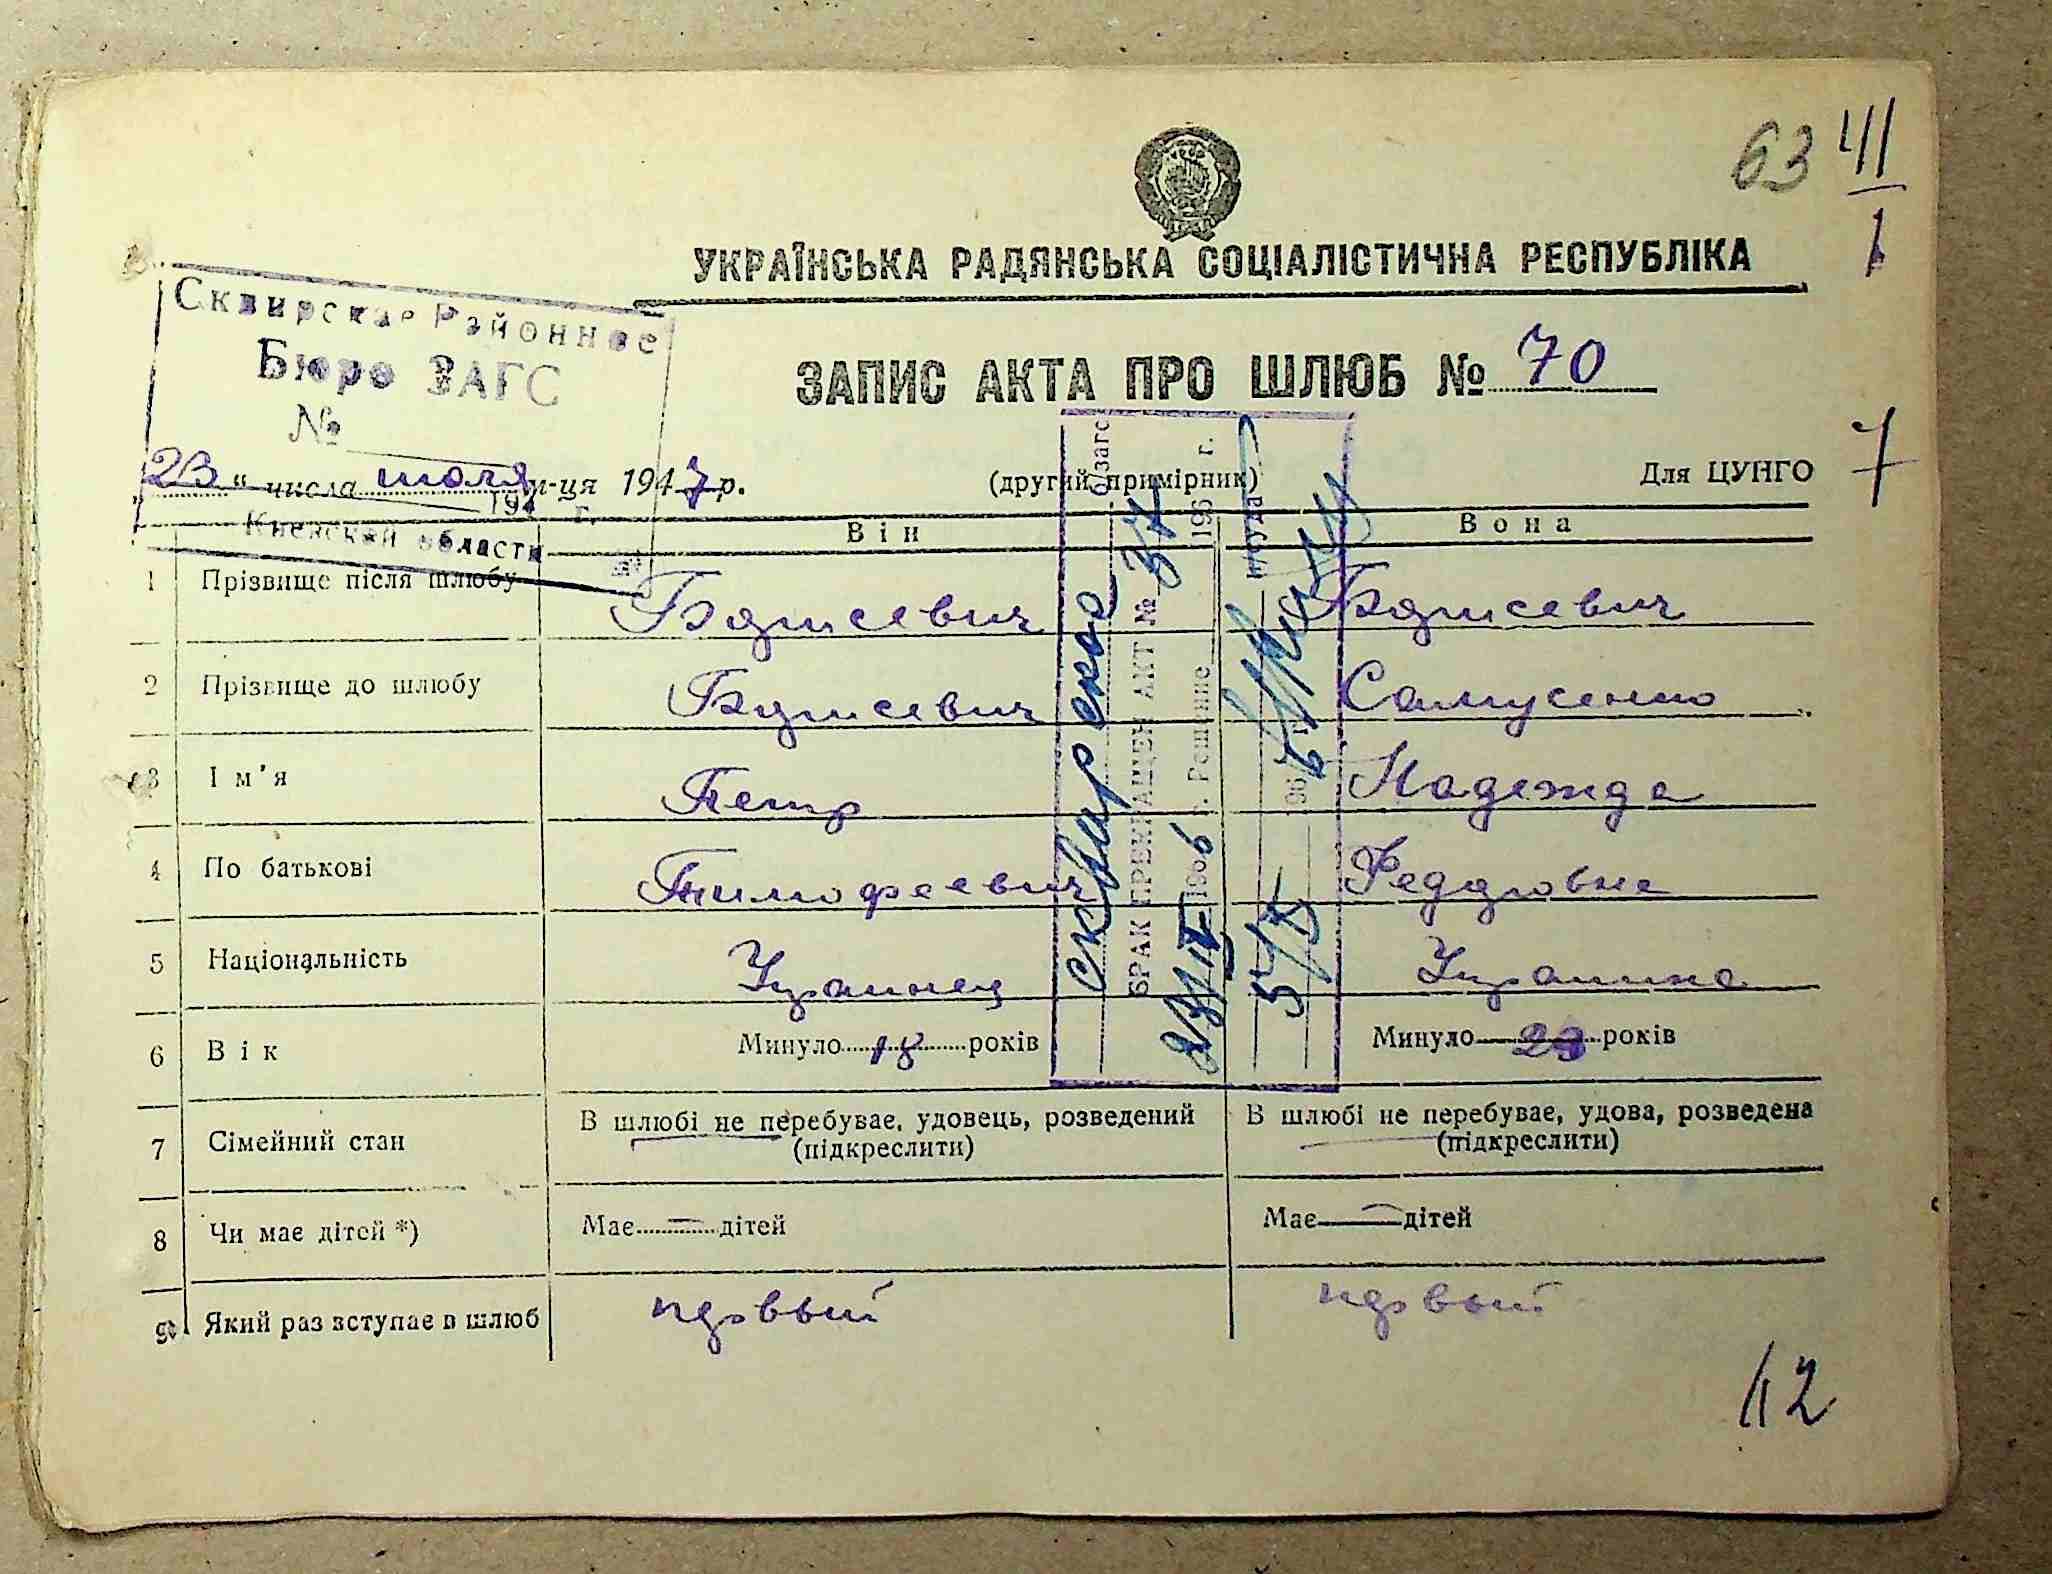 63 41
1
УКРАЇНСЬКА РАДЯНСЬКА СОЦІАЛІСТИЧНА РЕСПУБЛІКА
Сквирская Районное
Бюро ЗАГС
№
194 г.
Киевской области
ЗАПИС АКТА ПРО ШЛЮБ № 70
7
23 " числа июля м-ця 1947 р.
(другий примірник)
Для ЦУНГО
Він
Вона
1 Прізвище після шлюбу
2 Прізвище до шлюбу Самусенко
3 Ім'я Петр Надежда
4 По батькові Тимофеевич Федоровна
5 Національність Украинец Украинка
6 Вік Минуло 18 років Минуло років
7 Сімейний стан В шлюбі не перебуває, удовець, розведений В шлюбі не перебуває, удова, розведена
(підкреслити) (підкреслити)
8 Чи має дітей *) Має — дітей Має — дітей
9 Який раз вступає в шлюб первый первый
Сквирское о/загс
БРАК ПРЕКРАЩЕН АКТ № 37
1966 г. Решение 196 г.
н/суда
12